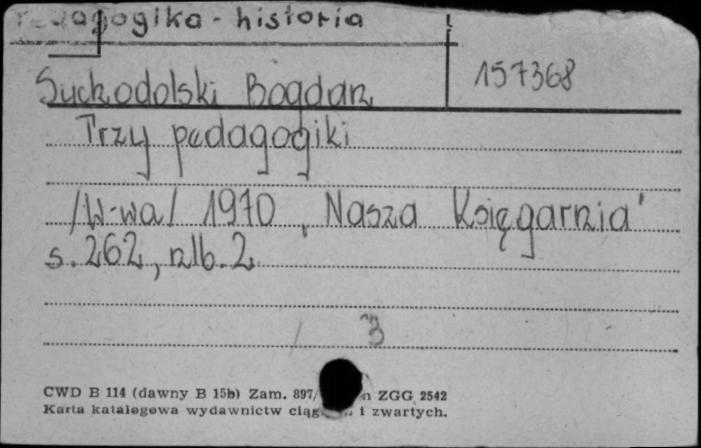 Pedagogika - historia
157368
Suchodolski Bogdan
Trzy pedagogiki
/W-wa/ 1970 „Nasza Księgarnia"
s. 262, nlb. 2
3
CWD B 114 (dawny B 15b) Zam. 897/ ZGG 2542
Karta katalogowa wydawnictw i zwartych.